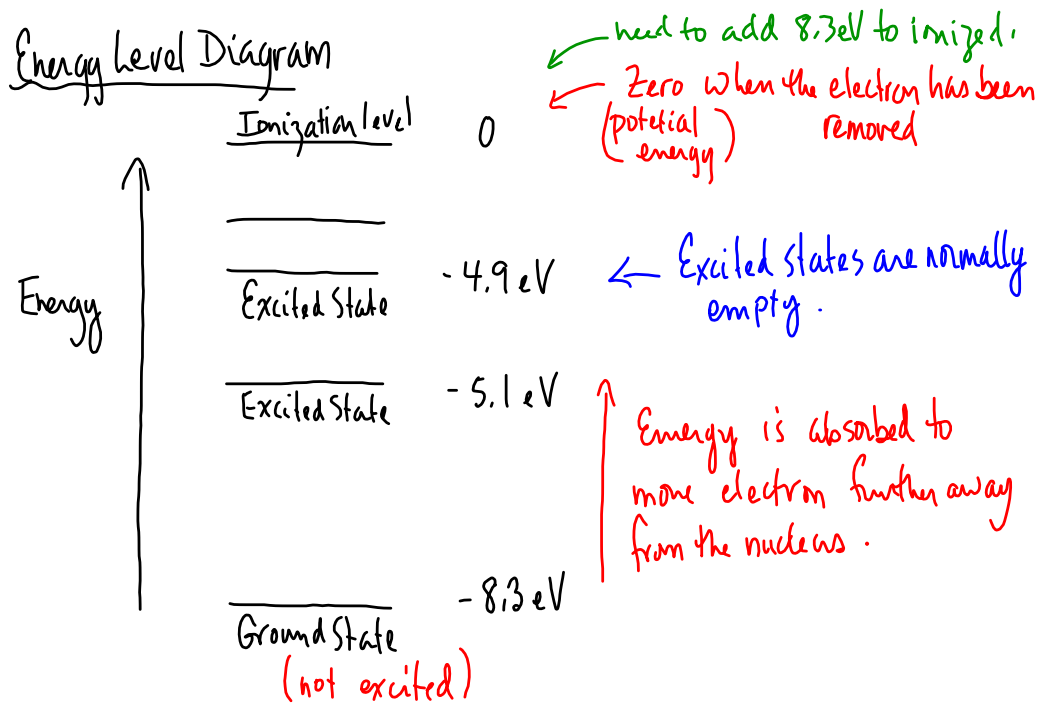 Energy Level Diagram
need to add 8.3eV to ionized.
Zero when the electron has been
removed
(potetial
energy)
Ionization level 0
Energy
-4.9 eV
Excited State
Excited states are normally
empty.
-5.1 eV
Excited State
Emergy is absorbed to
move electron further away
from the nucleus.
-8.3 eV
Ground State
(not excited)